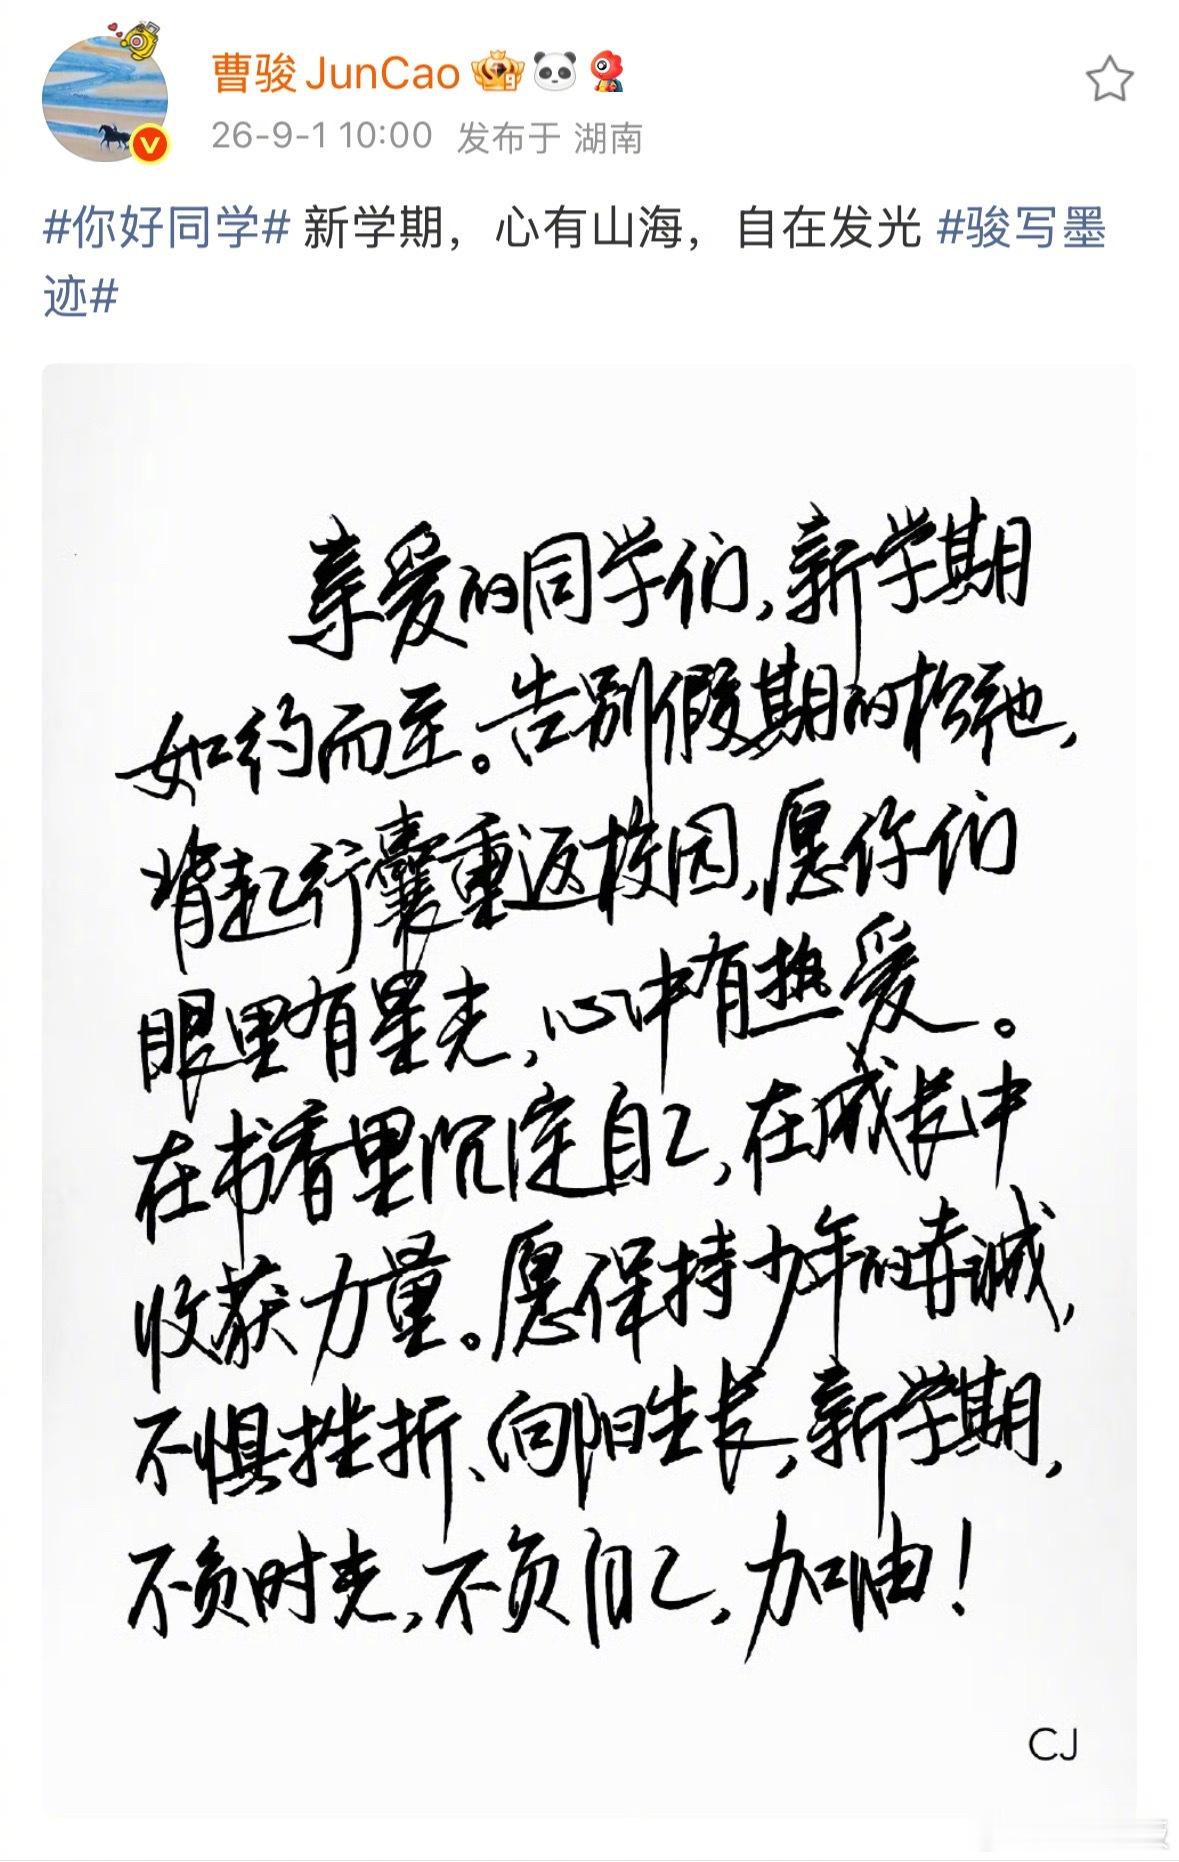 曹骏JunCao
26-9-1 10:00 发布于 湖南
#你好同学# 新学期，心有山海，自在发光 #骏写墨
迹#
亲爱的同学们，新学期
如约而至。告别假期的松弛，
背起行囊重返校园，愿你们
眼里有星光，心中有热爱。
在书香里沉淀自己，在成长中
收获力量。愿保持少年的赤诚，
不惧挫折、向阳生长，新学期，
不负时光，不负自己，加油！
CJ